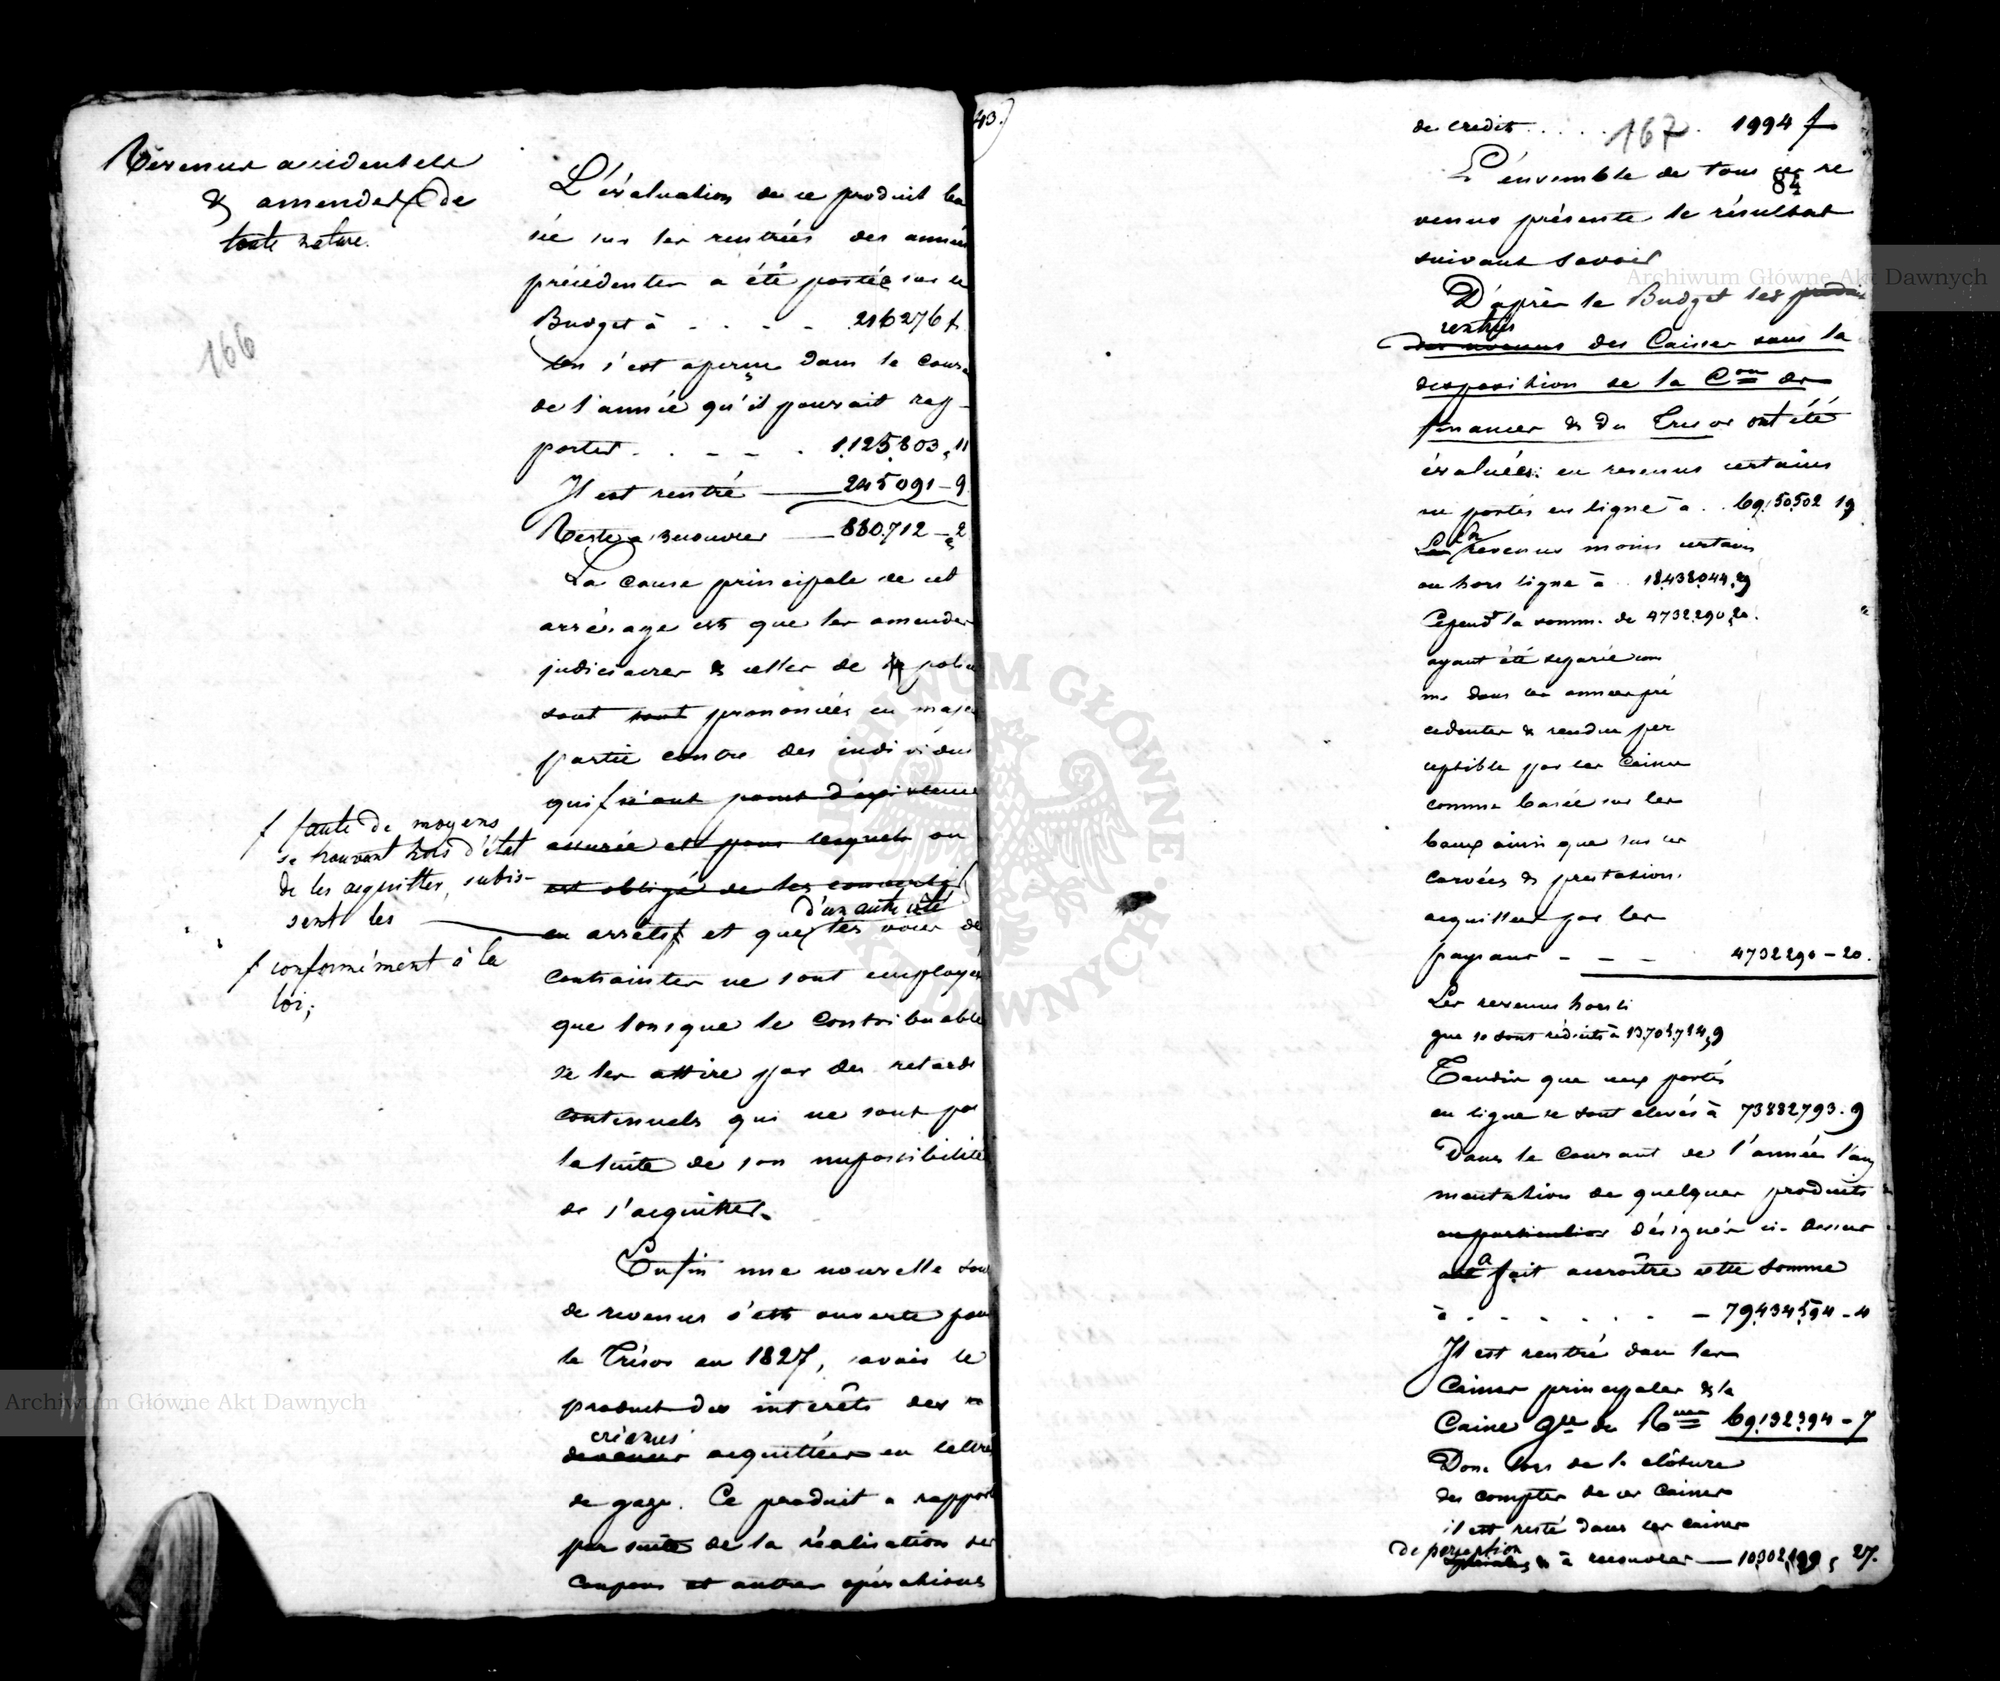 Revenus accidentels
& amendes de
toute nature.
166
L'évaluation de ce produit ba
sée sur les rentrées des années
précédentes a été portée sur le
Budget à - - - - 216276 f.
On s'est aperçu dans le cours
de l'année qu'il pourait rap-
porter . . - - . 1.125.803,11
Il est rentré 245091-9
Reste à recouvrer 880.712-2
La cause principale de cet
arrérage est que les amendes
judiciaires & celles de police
sont sont prononcées en majeure
partie contre des individus
qui n'ont point d'existence
assurée et pour lesquels on
est obligé de les convertir
d'un autre côté
en arrêts et que les voies de
contraintes ne sont employées
que lorsque le contribuable
se les attire par des retards
continuels qui ne sont pas
la suite de son impossibilité
de s'acquitter.
f faute de moyens
se trouvant hors d'état
de les acquitter, subis-
sent les
f conformément à la
loi;
Enfin une nouvelle source
de revenus s'est ouverte pour
le Trésor en 1827, savoir le
produit des intérêts des
créances
acquittées en lettres
de gage. Ce produit a rapporté
par suite de la réalisation des
coupons et autres opérations
43.
de credit . . . . . 1994 f
167
84
L'ensemble de tous ces re
venus présente le résultat
suivant savoir
D'après le Budget les produits
rentrées
des revenus des Caisses sous la
disposition de la Con des
finances & du Tresor ont été
évaluées: en revenus certains
ou portés en ligne à . . 69.150.502 19
Les revenus moins certains
ou hors ligne à . 18.438.044.29
Cepend la somme de 4732.290,20.
ayant été separée com
me dans les années pré
cedentes & rendue per
ceptible par les Caisses
comme basée sur les
baux ainsi que sur les
corvées & prestations
acquittées par les
paysans - - - 4732290-20.
Les revenus hors li
gne se sont réduits à 13.705.754,9
Tandis que ceux portés
en ligne se sont elevés à 73882793.9
Dans le courant de l'année l'aug
mentation de quelques produits
en particulier désignés ci-dessus
a
fait accroître cette somme
à - - - - - - 79.434.594-4
Il est rentré dans les
Caisses principales & la
Caisse Gle du Rme 69.132.394-7
Donc lors de la clôture
des comptes de ces Caisses
il est resté dans les caisses
de perception
& à recouvrer 10.302.199, 27.
Archiwum Główne Akt Dawnych
Archiwum Główne Akt Dawnych
ARCHIWUM GŁÓWNE AKT DAWNYCH